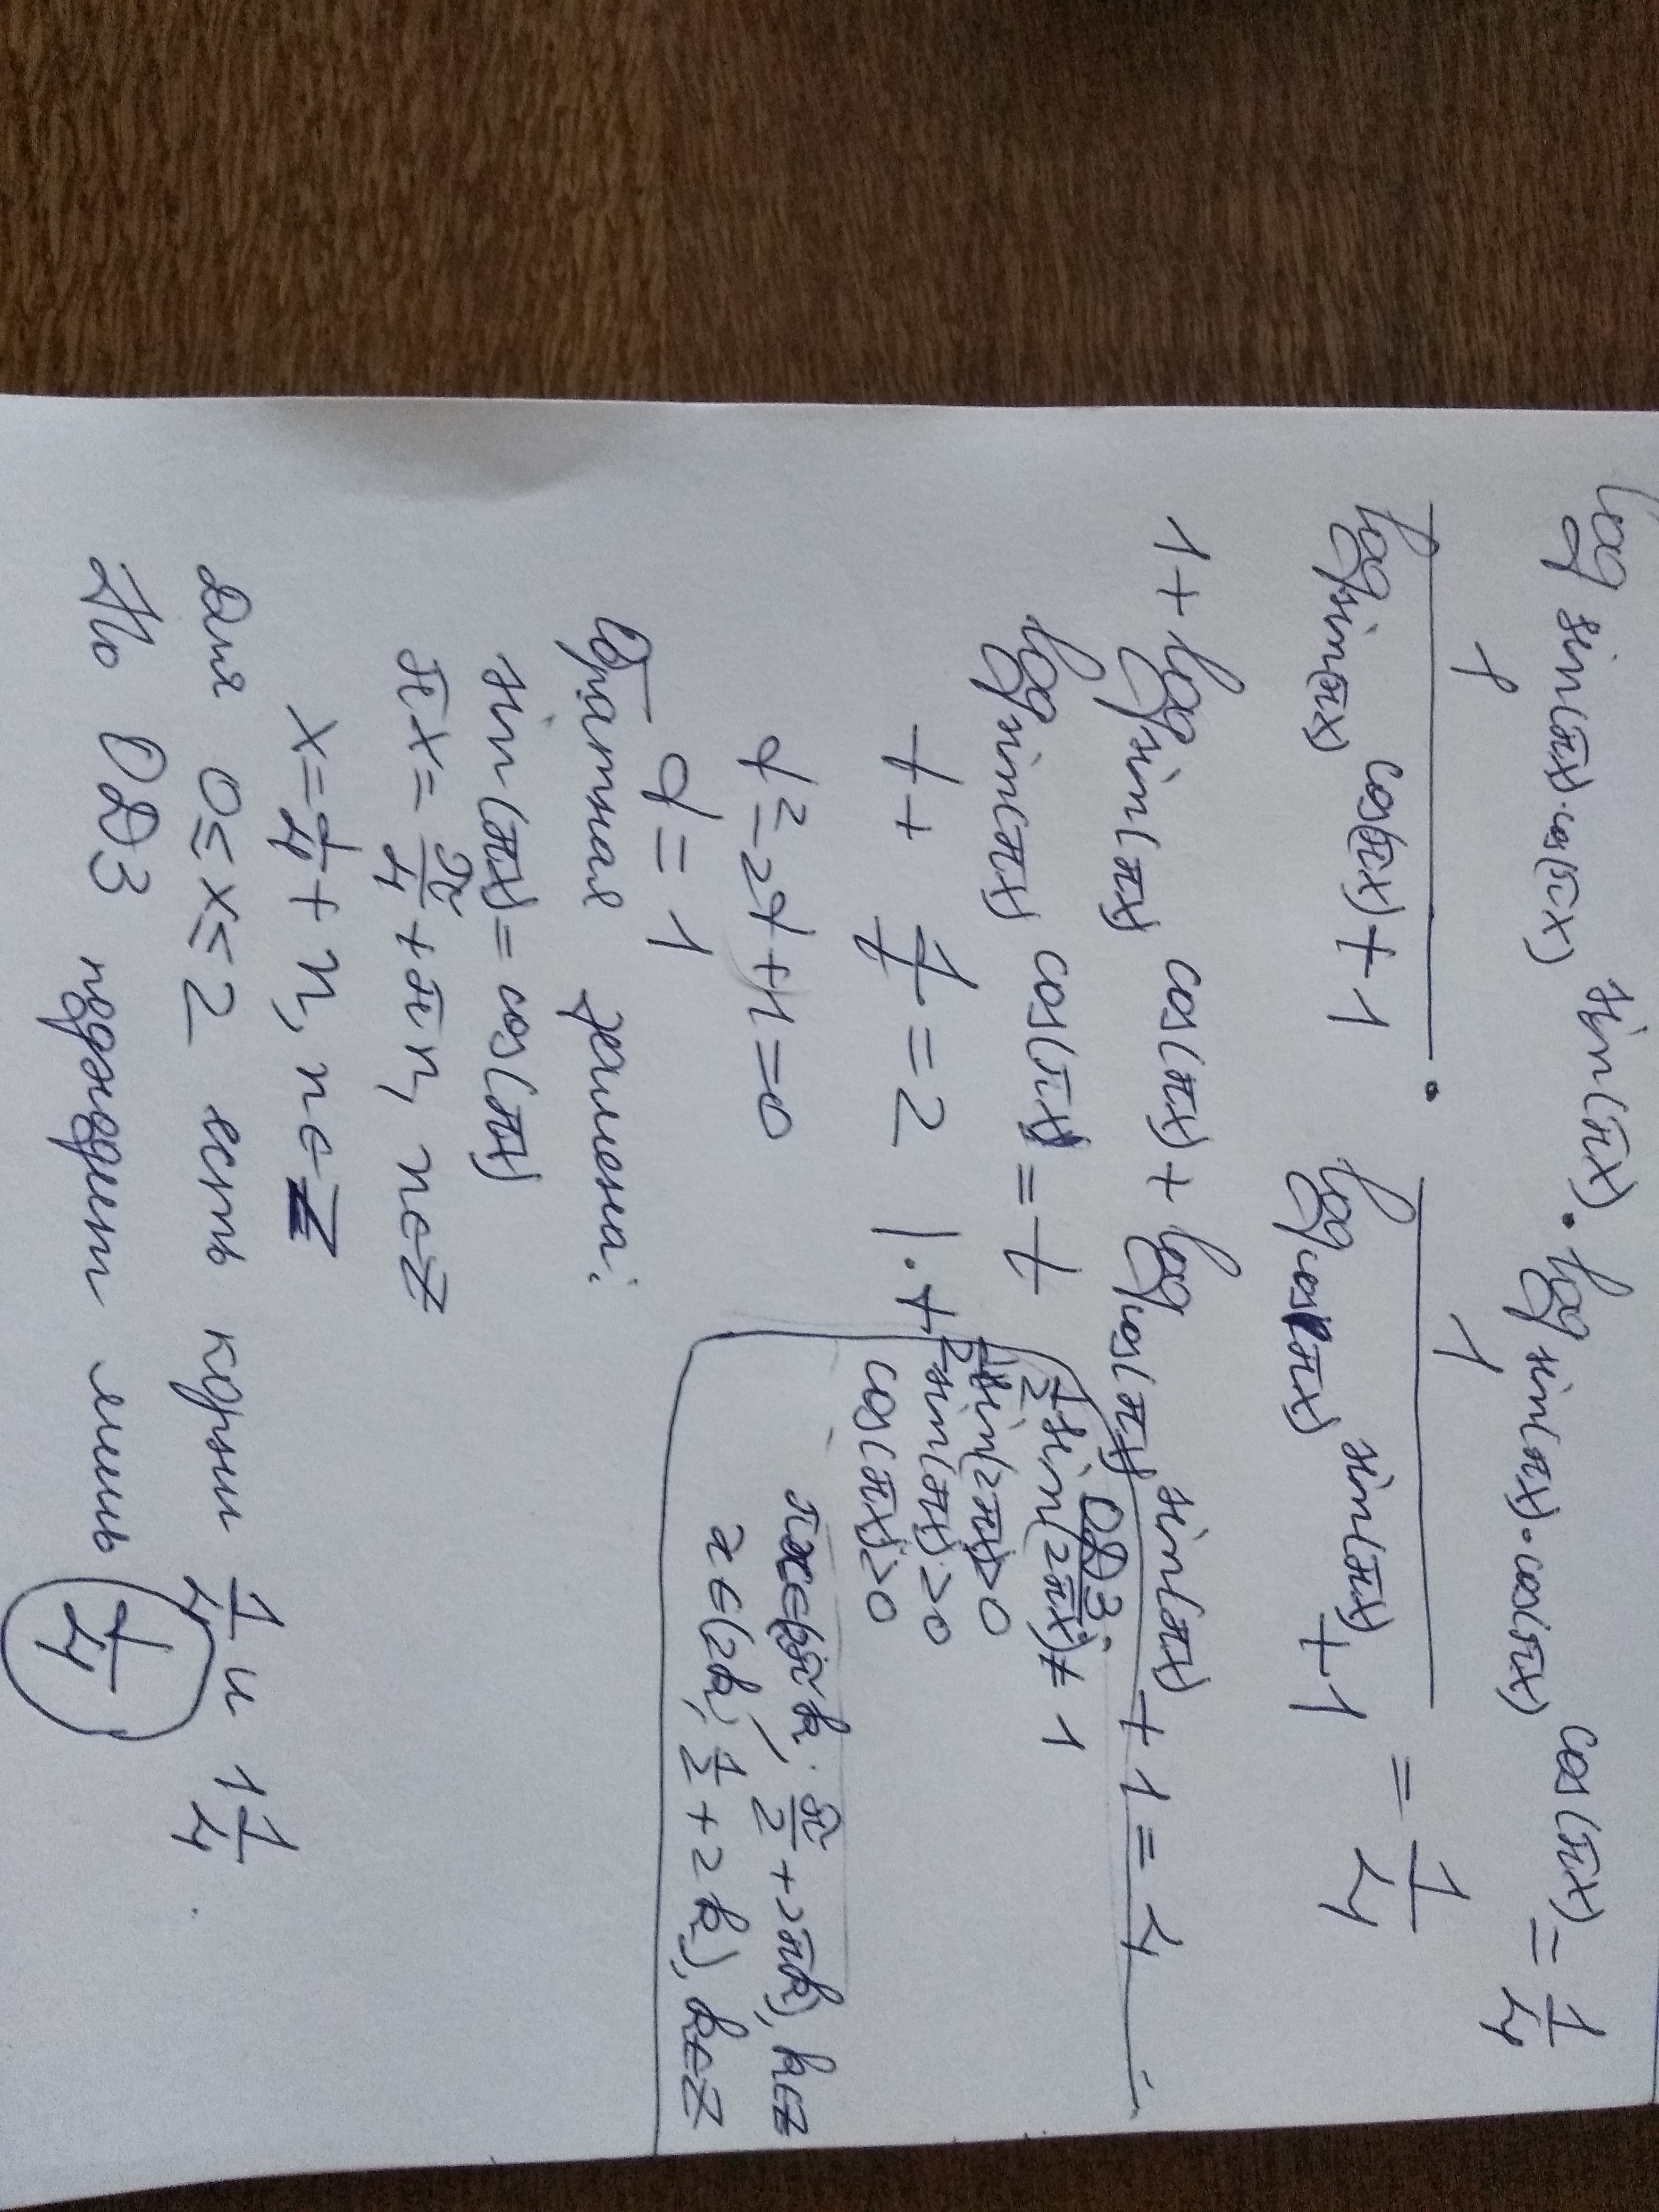 log sin(πx)·cos(πx) sin(πx) · log sin(πx)·cos(πx) cos(πx) = 1/4
1/(log sin(πx) cos(πx) + 1) · 1/(log cos(πx) sin(πx) + 1) = 1/4
1 + log sin(πx) cos(πx) + log cos(πx) sin(πx) + 1 = 4
log sin(πx) cos(πx) = t
t + 1/t = 2 | · t
t² - 2t + 1 = 0
t = 1
Обратная замена:
sin(πx) = cos(πx)
πx = π/4 + πn, n∈Z
x = 1/4 + n, n∈Z
Для 0 ≤ x ≤ 2 есть корни 1/4 и 1 1/4
По ОДЗ подходит лишь 1/4
ОДЗ:
1/2 sin(2πx) ≠ 1
1/2 sin(2πx) > 0
sin(πx) > 0
cos(πx) > 0
πx∈(2πk; π/2 + 2πk), k∈Z
x∈(2k; 1/2 + 2k), k∈Z